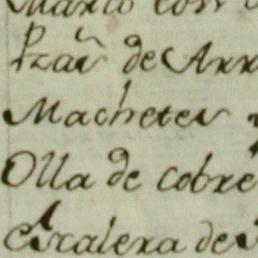 Marco con
Pzas de Arr
Machetes
Olla de cobre
escalera de